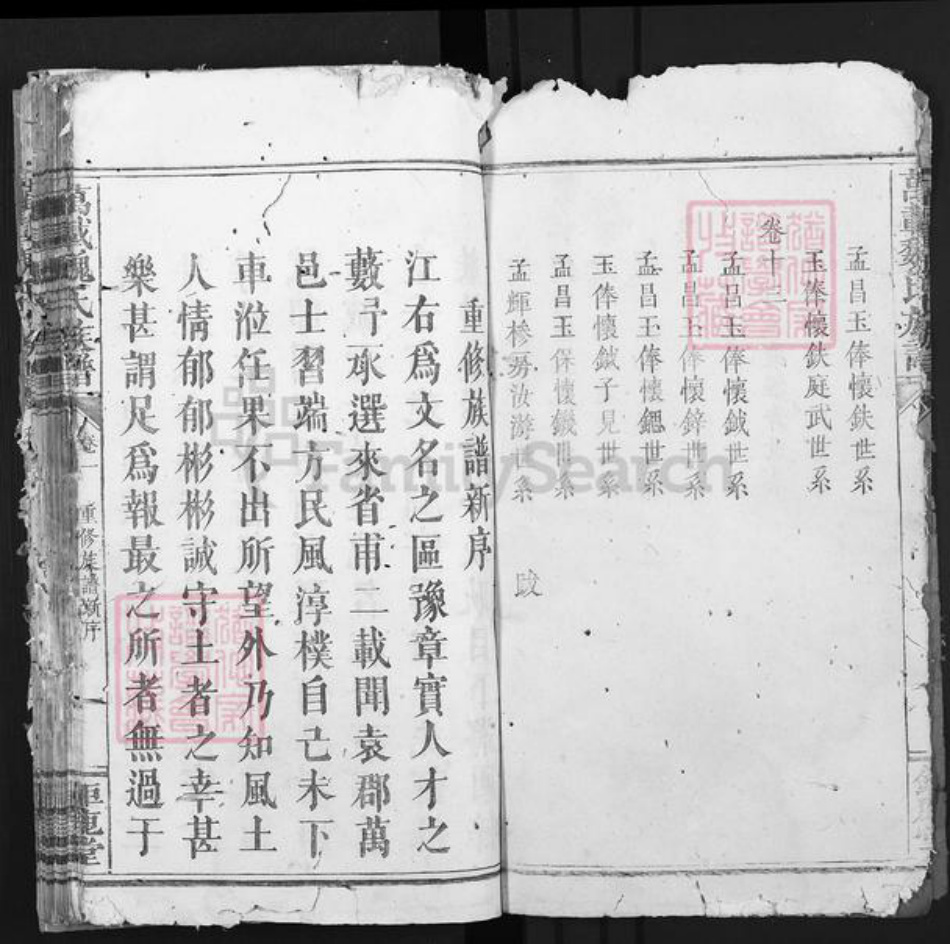 萬載魏氏族譜
孟昌玉俸懷鈇世系
玉俸懷鈇庭武世系
卷十三
孟昌玉俸懷鉞世系
孟昌玉俸懷鋅世系
孟昌玉俸懷鍶世系
玉俸懷鉞子見世系
孟昌玉保懷鑁世系
孟輝槮昮汝游世系
跋
重修族譜新序
江右爲文名之區豫章實人才之
藪予承選來省甫二載聞袁郡萬
邑士習端方民風淳樸自己未下
車涖任果不出所望外乃知風土
人情郁郁彬彬誠守土者之幸甚
樂甚謂足爲報最之所者無過于
萬載魏氏族譜
卷一
重修族譜新序
鉅鹿堂
FamilySearch